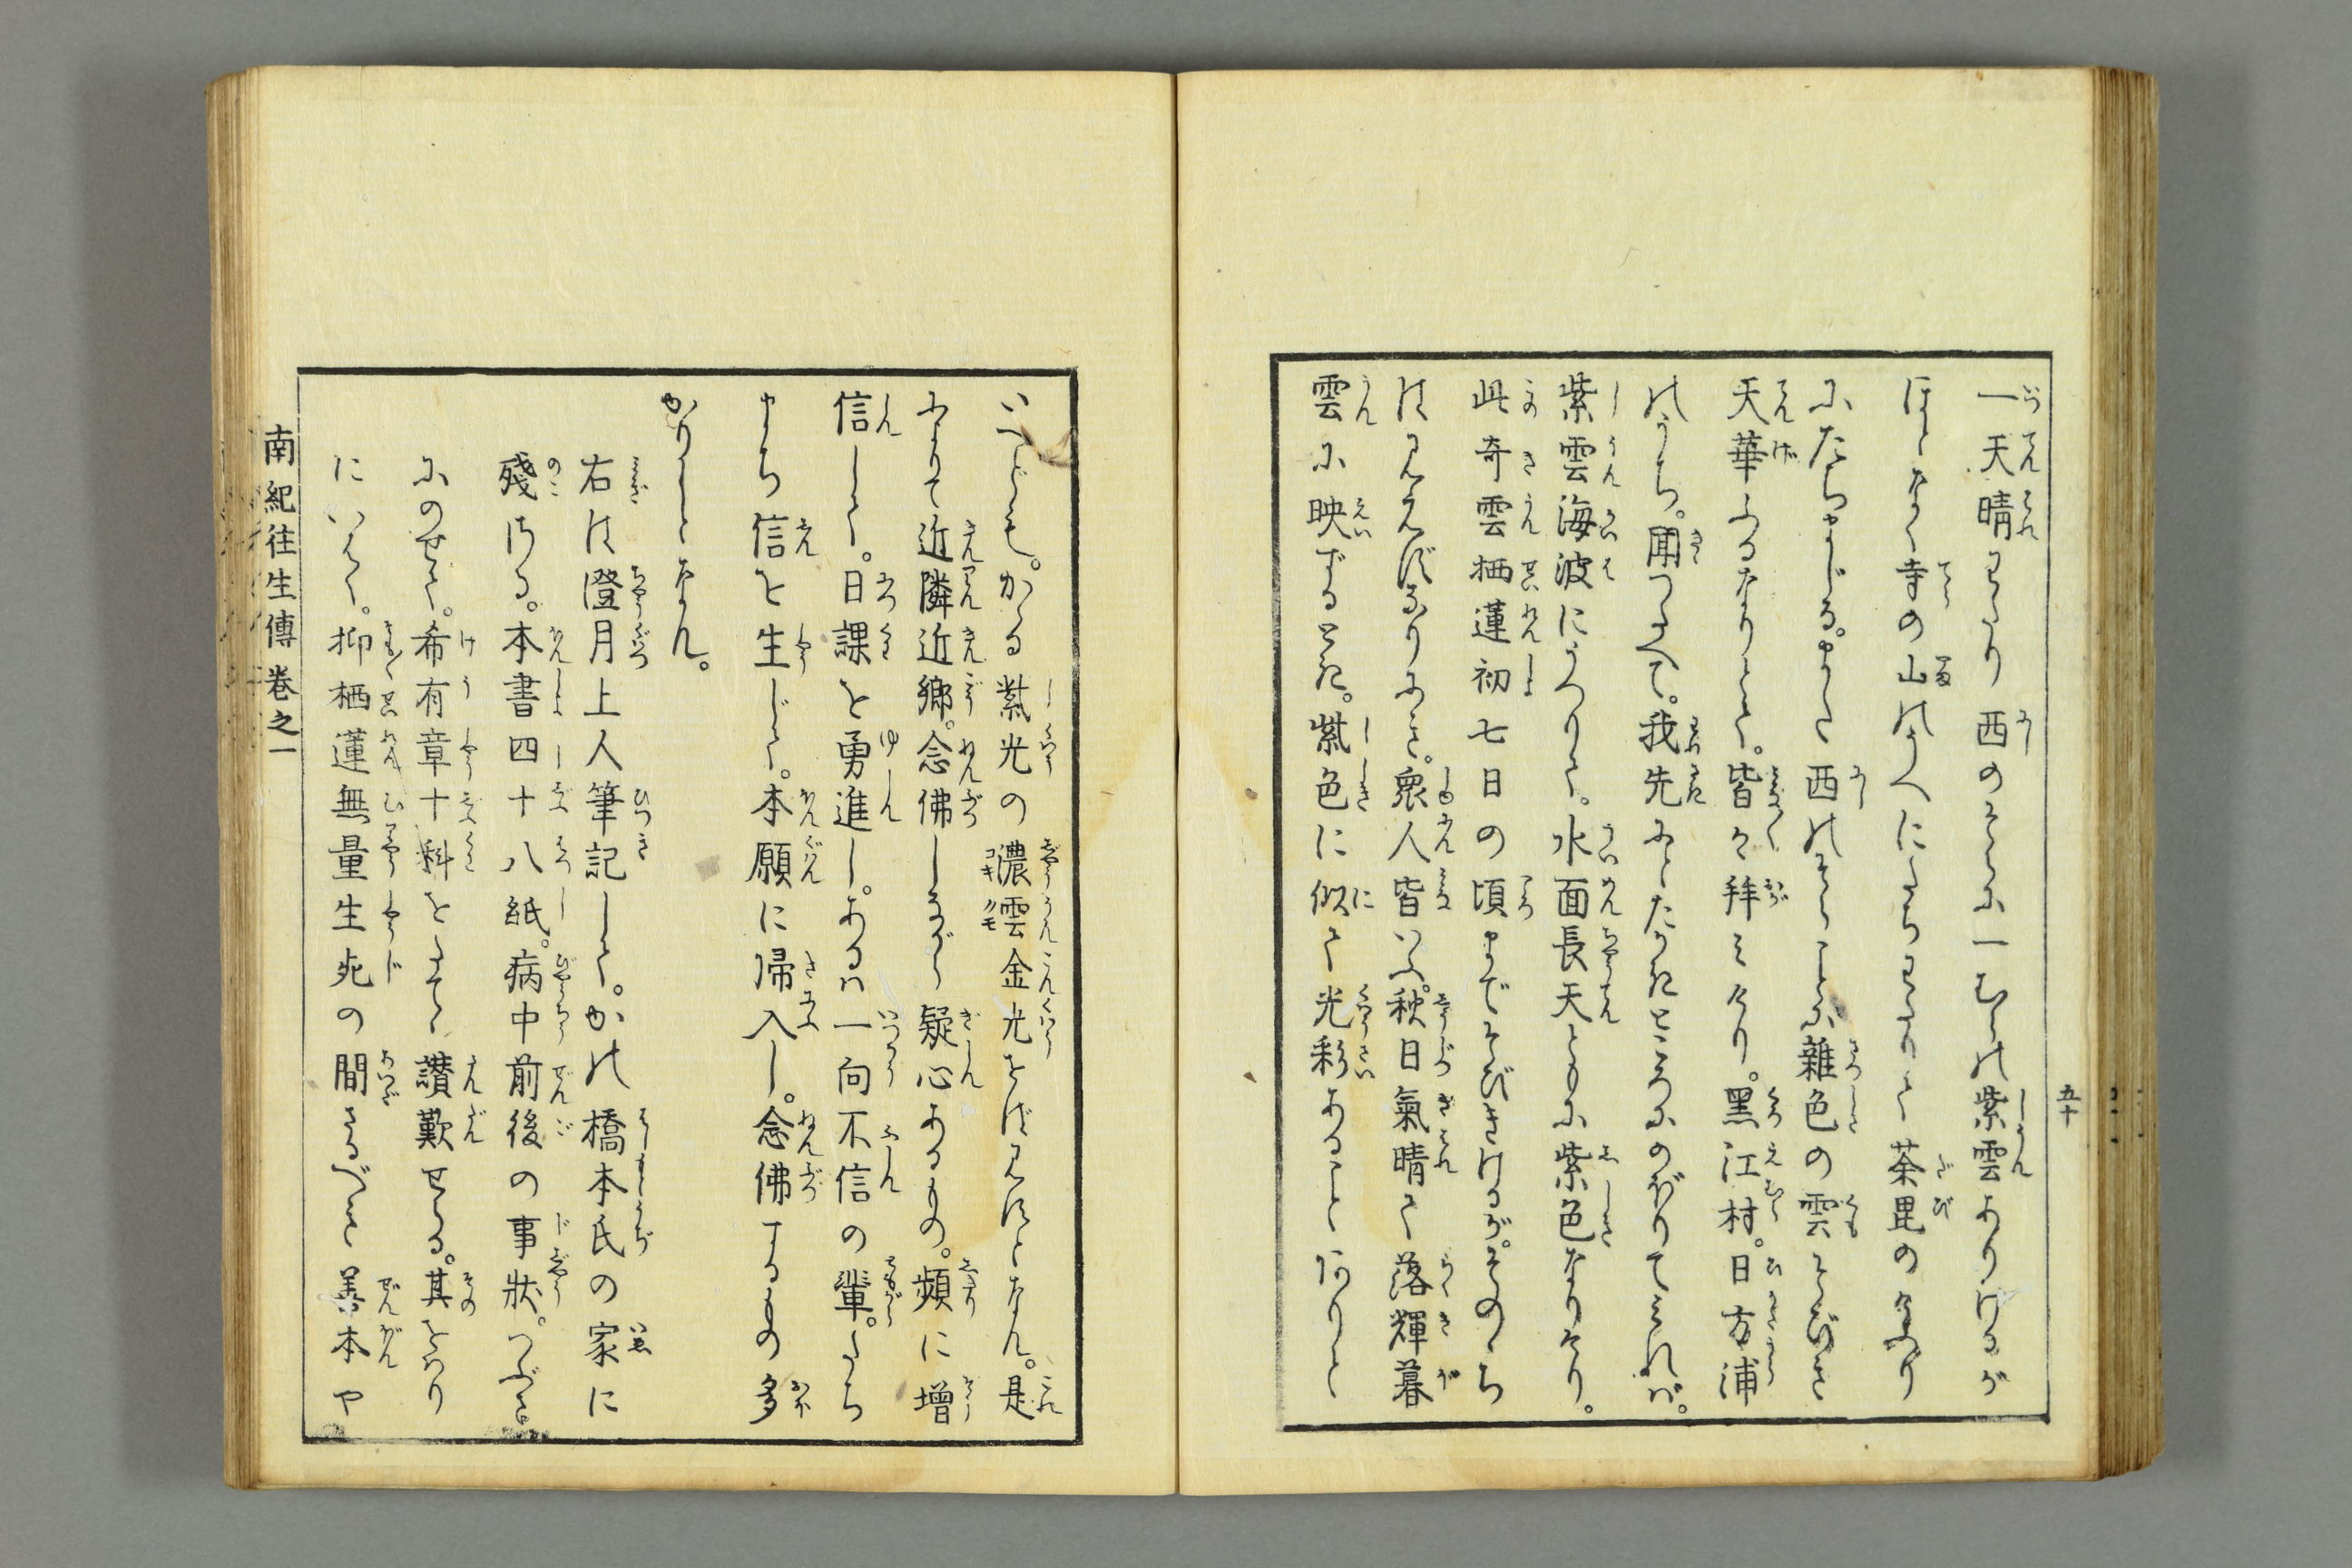 一天晴わたり西のそらに一むらの紫雲ありけるが
ほどなく寺の山のうへにたちわたりて荼毘の
にたちまじる。また西のそらことに雜色の雲たなびき
天華ふるなりとて。皆々拜みけり。黑江村。日方浦
のうち。聞つたへて。我先にとたかきところにのぼりてみれば。
紫雲海波にうつりて。水面長天ともに紫色なりけり。
此奇雲栖蓮初七日の頃までそびきけるが。そのゝち
はみえざりにき。衆人皆いふ。秋日氣晴て落輝暮
雲に映ずるときは。紫色に似て光彩あることありと
いへども。かゝる紫光の濃雲金光をばみずとなん。是
によりて近隣近鄉。念佛しながら疑心あるもの。頻に增
信して。日課を勇進し。あるは一向不信の輩。たち
まち信を生じて。本願に歸入し。念佛するもの多
かりしとなん。
右は澄月上人筆記して。かの橋本氏の家に
殘ける。本書四十八紙。病中前後の事狀。つぶさ
にのせて。希有章十科をたてゝ讃歎せる。其をはり
にいはく。抑栖蓮無量生死の間さるべき善本や
南紀往生傳 卷之一
五十